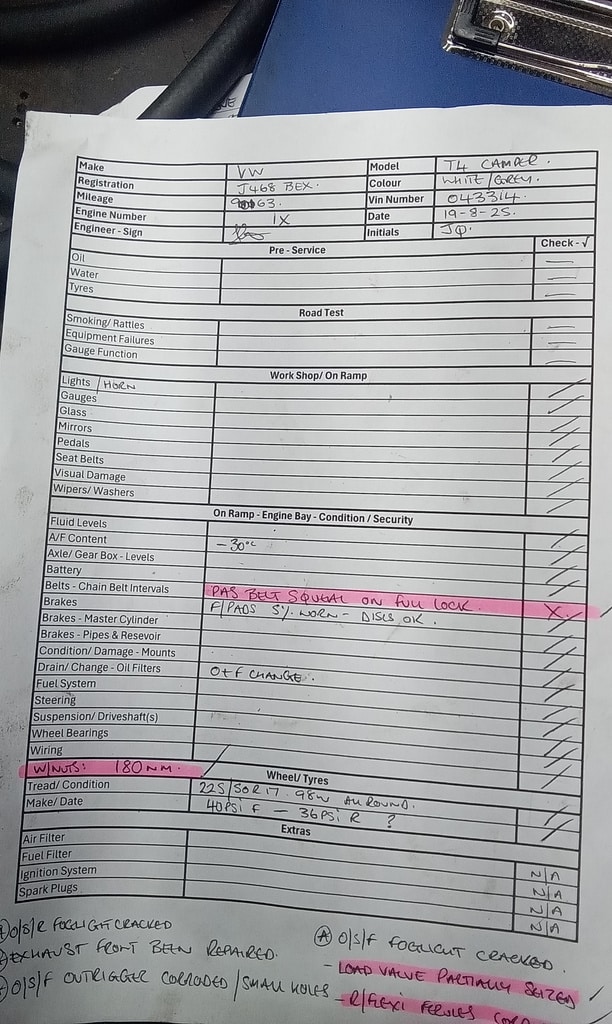 Make VW Model T4 CAMPER.
Registration J468 BEX. Colour WHITE/GREY.
Mileage Vin Number 043314.
Engine Number 1X Date 19-8-25.
Engineer - Sign Initials
Pre - Service Check - √
Oil —
Water —
Tyres —
Road Test
Smoking/ Rattles —
Equipment Failures —
Gauge Function —
Work Shop/ On Ramp
Lights / HORN
Gauges
Glass
Mirrors
Pedals
Seat Belts
Visual Damage
Wipers/ Washers
On Ramp - Engine Bay - Condition / Security
Fluid Levels
A/F Content -30°C
Axle/ Gear Box - Levels
Battery
Belts - Chain Belt Intervals PAS BELT SQUEAL ON FULL LOCK. X
Brakes F/PADS 5% WORN - DISCS OK.
Brakes - Master Cylinder
Brakes - Pipes & Resevoir
Condition/ Damage - Mounts
Drain/ Change - Oil Filters O+F CHANGE.
Fuel System
Steering
Suspension/ Driveshaft(s)
Wheel Bearings
Wiring
W/NUTS: 180NM.
Wheel/ Tyres
Tread/ Condition 225/50R17. 98W ALL ROUND.
Make/ Date 40PSI F - 36PSI R ?
Extras
Air Filter N/A
Fuel Filter N/A
Ignition System N/A
Spark Plugs N/A
O/S/R FOGLIGHT CRACKED
EXHAUST FRONT BEEN REPAIRED.
O/S/F OUTRIGGER CORRODED/SMALL HOLES
A O/S/F FOGLIGHT CRACKED.
- LOAD VALVE PARTIALLY SEIZED
- R/FLEXI FERULES